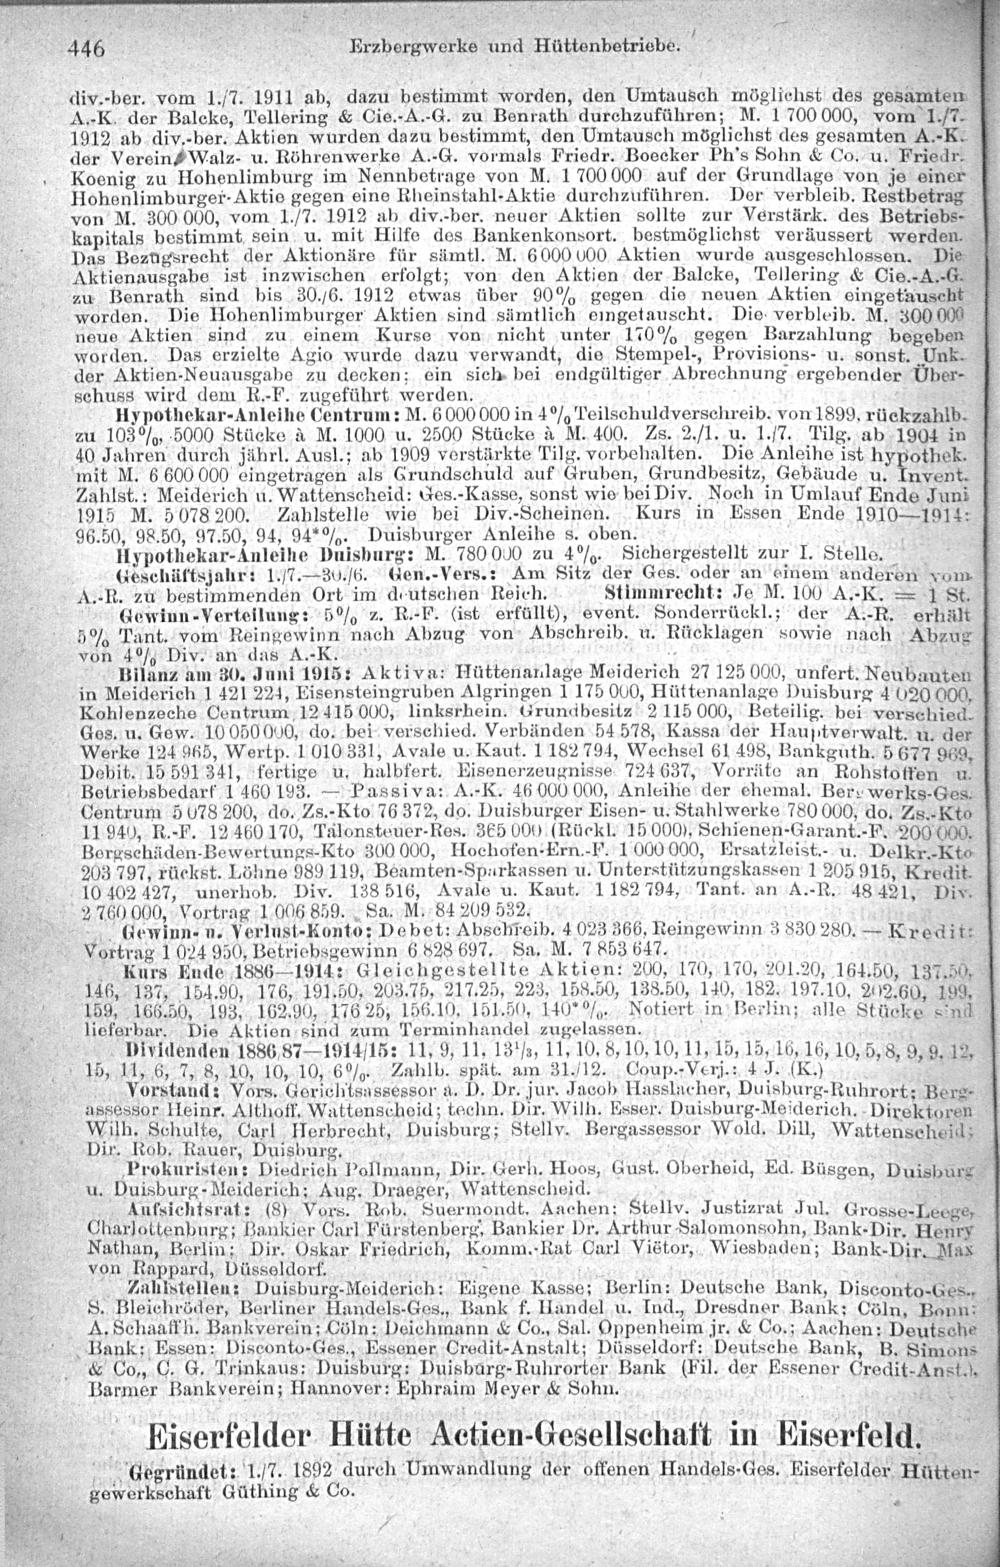 446 Erzbergwerke und Hüttenbetriebe.
div.-ber. vom 1./7. 1911 ab, dazu bestimmt worden, den Umtausch möglichst des gesamten
A.-K. der Balcke, Tellering & Cie.-A.-G. zu Benrath durchzuführen; M. 1 700 000, vom 1./7.
1912 ab div.-ber. Aktien wurden dazu bestimmt, den Umtausch möglichst des gesamten A.-K.
der Verein. Walz- u. Röhrenwerke A.-G. vormals Friedr. Boecker Ph's Sohn & Co. u. Friedr.
Koenig zu Hohenlimburg im Nennbetrage von M. 1 700 000 auf der Grundlage von je einer
Hohenlimburger-Aktie gegen eine Rheinstahl-Aktie durchzuführen. Der verbleib. Restbetrag
von M. 300 000, vom 1./7. 1912 ab div.-ber. neuer Aktien sollte zur Verstärk. des Betriebs-
kapitals bestimmt sein u. mit Hilfe des Bankenkonsort. bestmöglichst veräussert werden.
Das Bezugsrecht der Aktionäre für sämtl. M. 6 000 000 Aktien wurde ausgeschlossen. Die
Aktienausgabe ist inzwischen erfolgt; von den Aktien der Balcke, Tellering & Cie.-A.-G.
zu Benrath sind bis 30./6. 1912 etwas über 90% gegen die neuen Aktien eingetauscht
worden. Die Hohenlimburger Aktien sind sämtlich eingetauscht. Die verbleib. M. 300 000
neue Aktien sind zu einem Kurse von nicht unter 170% gegen Barzahlung begeben
worden. Das erzielte Agio wurde dazu verwandt, die Stempel-, Provisions- u. sonst. Unk.
der Aktien-Neuausgabe zu decken; ein sich bei endgültiger Abrechnung ergebender Über-
schuss wird dem R.-F. zugeführt werden.
Hypothekar-Anleihe Centrum: M. 6 000 000 in 4% Teilschuldverschreib. von 1899, rückzahlb.
zu 103%, 5000 Stücke à M. 1000 u. 2500 Stücke à M. 400. Zs. 2./1. u. 1./7. Tilg. ab 1904 in
40 Jahren durch jährl. Ausl.; ab 1909 verstärkte Tilg. vorbehalten. Die Anleihe ist hypothek.
mit M. 6 600 000 eingetragen als Grundschuld auf Gruben, Grundbesitz, Gebäude u. Invent.
Zahlst.: Meiderich u. Wattenscheid: Ges.-Kasse, sonst wie bei Div. Noch in Umlauf Ende Juni
1915 M. 5 078 200. Zahlstelle wie bei Div.-Scheinen. Kurs in Essen Ende 1910—1914:
96.50, 98.50, 97.50, 94, 94*%. Duisburger Anleihe s. oben.
Hypothekar-Anleihe Duisburg: M. 780 000 zu 4%. Sichergestellt zur I. Stelle.
Geschäftsjahr: 1./7.—30./6. Gen.-Vers.: Am Sitz der Ges. oder an einem anderen vom
A.-R. zu bestimmenden Ort im deutschen Reich. Stimmrecht: Je M. 100 A.-K. = 1 St.
Gewinn-Verteilung: 5% z. R.-F. (ist erfüllt), event. Sonderrückl.; der A.-R. erhält
5% Tant. vom Reingewinn nach Abzug von Abschreib. u. Rücklagen sowie nach Abzug
von 4% Div. an das A.-K.
Bilanz am 30. Juni 1915: Aktiva: Hüttenanlage Meiderich 27 125 000, unfert. Neubauten
in Meiderich 1 421 224, Eisensteingruben Algringen 1 175 000, Hüttenanlage Duisburg 4 020 000,
Kohlenzeche Centrum 12 415 000, linksrhein. Grundbesitz 2 115 000, Beteilig. bei verschied.
Ges. u. Gew. 10 050 000, do. bei verschied. Verbänden 54 578, Kassa der Hauptverwalt. u. der
Werke 124 965, Wertp. 1 010 331, Avale u. Kaut. 1 182 794, Wechsel 61 498, Bankguth. 5 677 969,
Debit. 15 591 341, fertige u. halbfert. Eisenerzeugnisse 724 637, Vorräte an Rohstoffen u.
Betriebsbedarf 1 460 193. — Passiva: A.-K. 46 000 000, Anleihe der ehemal. Bergwerks-Ges.
Centrum 5 078 200, do. Zs.-Kto 76 372, do. Duisburger Eisen- u. Stahlwerke 780 000, do. Zs.-Kto
11 940, R.-F. 12 460 170, Talonsteuer-Res. 365 000 (Rückl. 15 000), Schienen-Garant.-F. 200 000,
Bergschäden-Bewertungs-Kto 300 000, Hochofen-Ern.-F. 1 000 000, Ersatzleist.- u. Delkr.-Kto
203 797, rückst. Löhne 989 119, Beamten-Sparkassen u. Unterstützungskassen 1 205 915, Kredit.
10 402 427, unerhob. Div. 138 516, Avale u. Kaut. 1 182 794, Tant. an A.-R. 48 421, Div.
2 760 000, Vortrag 1 006 859. Sa. M. 84 209 532.
Gewinn- u. Verlust-Konto: Debet: Abschreib. 4 023 366, Reingewinn 3 830 280. — Kredit:
Vortrag 1 024 950, Betriebsgewinn 6 828 697. Sa. M. 7 853 647.
Kurs Ende 1886—1914: Gleichgestellte Aktien: 200, 170, 170, 201.20, 164.50, 137.50,
146, 137, 154.90, 176, 191.50, 203.75, 217.25, 223, 158.50, 138.50, 140, 182, 197.10, 202.60, 199,
159, 166.50, 193, 162.90, 176 25, 156.10, 151.50, 140*%. Notiert in Berlin; alle Stücke sind
lieferbar. Die Aktien sind zum Terminhandel zugelassen.
Dividenden 1886/87—1914/15: 11, 9, 11, 13⅓, 11, 10, 8, 10, 10, 11, 15, 15, 16, 16, 10, 5, 8, 9, 9, 12,
15, 11, 6, 7, 8, 10, 10, 10, 6%. Zahlb. spät. am 31./12. Coup.-Verj.: 4 J. (K.)
Vorstand: Vors. Gerichtsassessor a. D. Dr. jur. Jacob Hasslacher, Duisburg-Ruhrort; Berg-
assessor Heinr. Althoff, Wattenscheid; techn. Dir. Wilh. Esser, Duisburg-Meiderich. Direktoren
Wilh. Schulte, Carl Herbrecht, Duisburg; Stellv. Bergassessor Wold. Dill, Wattenscheid;
Dir. Rob. Rauer, Duisburg.
Prokuristen: Diedrich Pollmann, Dir. Gerh. Hoos, Gust. Oberheid, Ed. Büsgen, Duisburg
u. Duisburg-Meiderich; Aug. Draeger, Wattenscheid.
Aufsichtsrat: (8) Vors. Rob. Suermondt, Aachen; Stellv. Justizrat Jul. Grosse-Leege,
Charlottenburg; Bankier Carl Fürstenberg, Bankier Dr. Arthur Salomonsohn, Bank-Dir. Henry
Nathan, Berlin; Dir. Oskar Friedrich, Komm.-Rat Carl Viëtor, Wiesbaden; Bank-Dir. Max
von Rappard, Düsseldorf.
Zahlstellen: Duisburg-Meiderich: Eigene Kasse; Berlin: Deutsche Bank, Disconto-Ges.,
S. Bleichröder, Berliner Handels-Ges., Bank f. Handel u. Ind., Dresdner Bank; Cöln, Bonn:
A. Schaaffh. Bankverein; Cöln: Deichmann & Co., Sal. Oppenheim jr. & Co.; Aachen: Deutsche
Bank; Essen: Disconto-Ges., Essener Credit-Anstalt; Düsseldorf: Deutsche Bank, B. Simons
& Co., C. G. Trinkaus; Duisburg: Duisburg-Ruhrorter Bank (Fil. der Essener Credit-Anst.),
Barmer Bankverein; Hannover: Ephraim Meyer & Sohn.
Eiserfelder Hütte Actien-Gesellschaft in Eiserfeld.
Gegründet: 1./7. 1892 durch Umwandlung der offenen Handels-Ges. Eiserfelder Hütten-
gewerkschaft Güthing & Co.